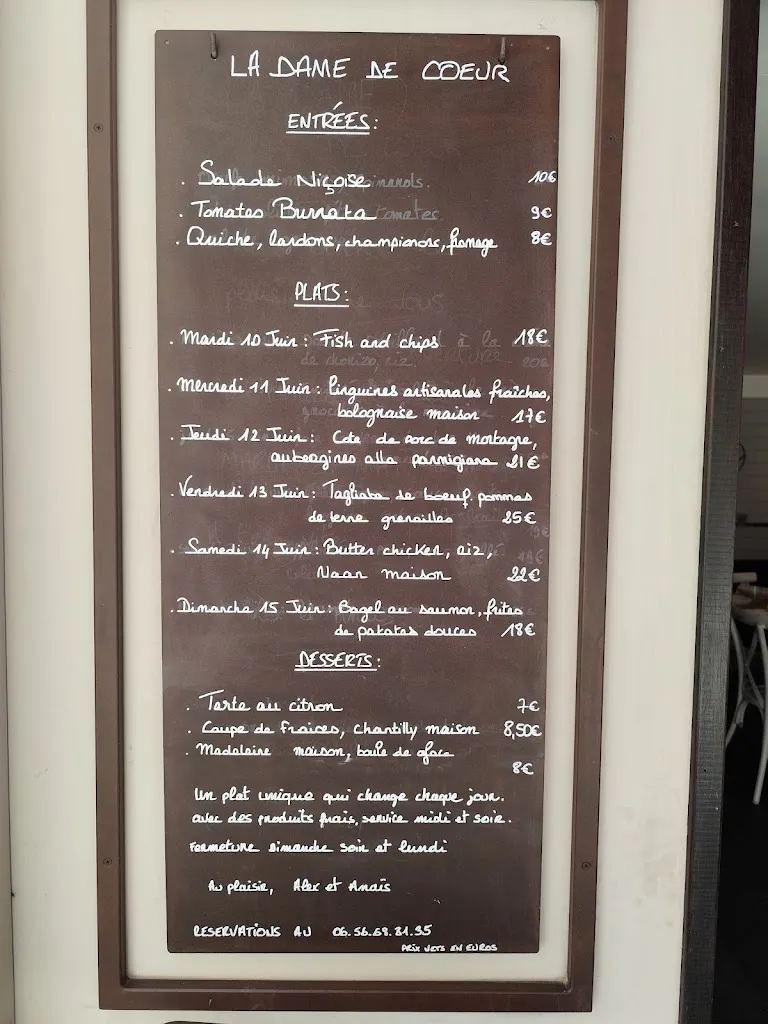 LA DAME DE COEUR
ENTRÉES :
. Salade Niçoise 10€
. Tomates Burrata 9€
. Quiche, lardons, champignons, fromage 8€
PLATS :
. Mardi 10 Juin : Fish and chips 18€
. Mercredi 11 Juin : linguines artisanales fraîches,
bolognaise maison 17€
. Jeudi 12 Juin : Cote de porc de mortagne,
aubergines alla parmigiana 21€
. Vendredi 13 Juin : Tagliata de boeuf, pommes
de terre grenailles 25€
. Samedi 14 Juin : Butter chicken, riz,
Naan maison 22€
. Dimanche 15 Juin : Bagel au saumon, frites
de patates douces 18€
DESSERTS :
. Tarte au citron 7€
. Coupe de fraises, chantilly maison 8,50€
. Madeleine maison, boule de glace
8€
Un plat unique qui change chaque jour.
avec des produits frais, service midi et soir.
Fermeture dimanche soir et lundi
Au plaisir, Alex et Anaïs
RESERVATIONS AU 06.56.68.81.95
PRIX NETS EN EUROS